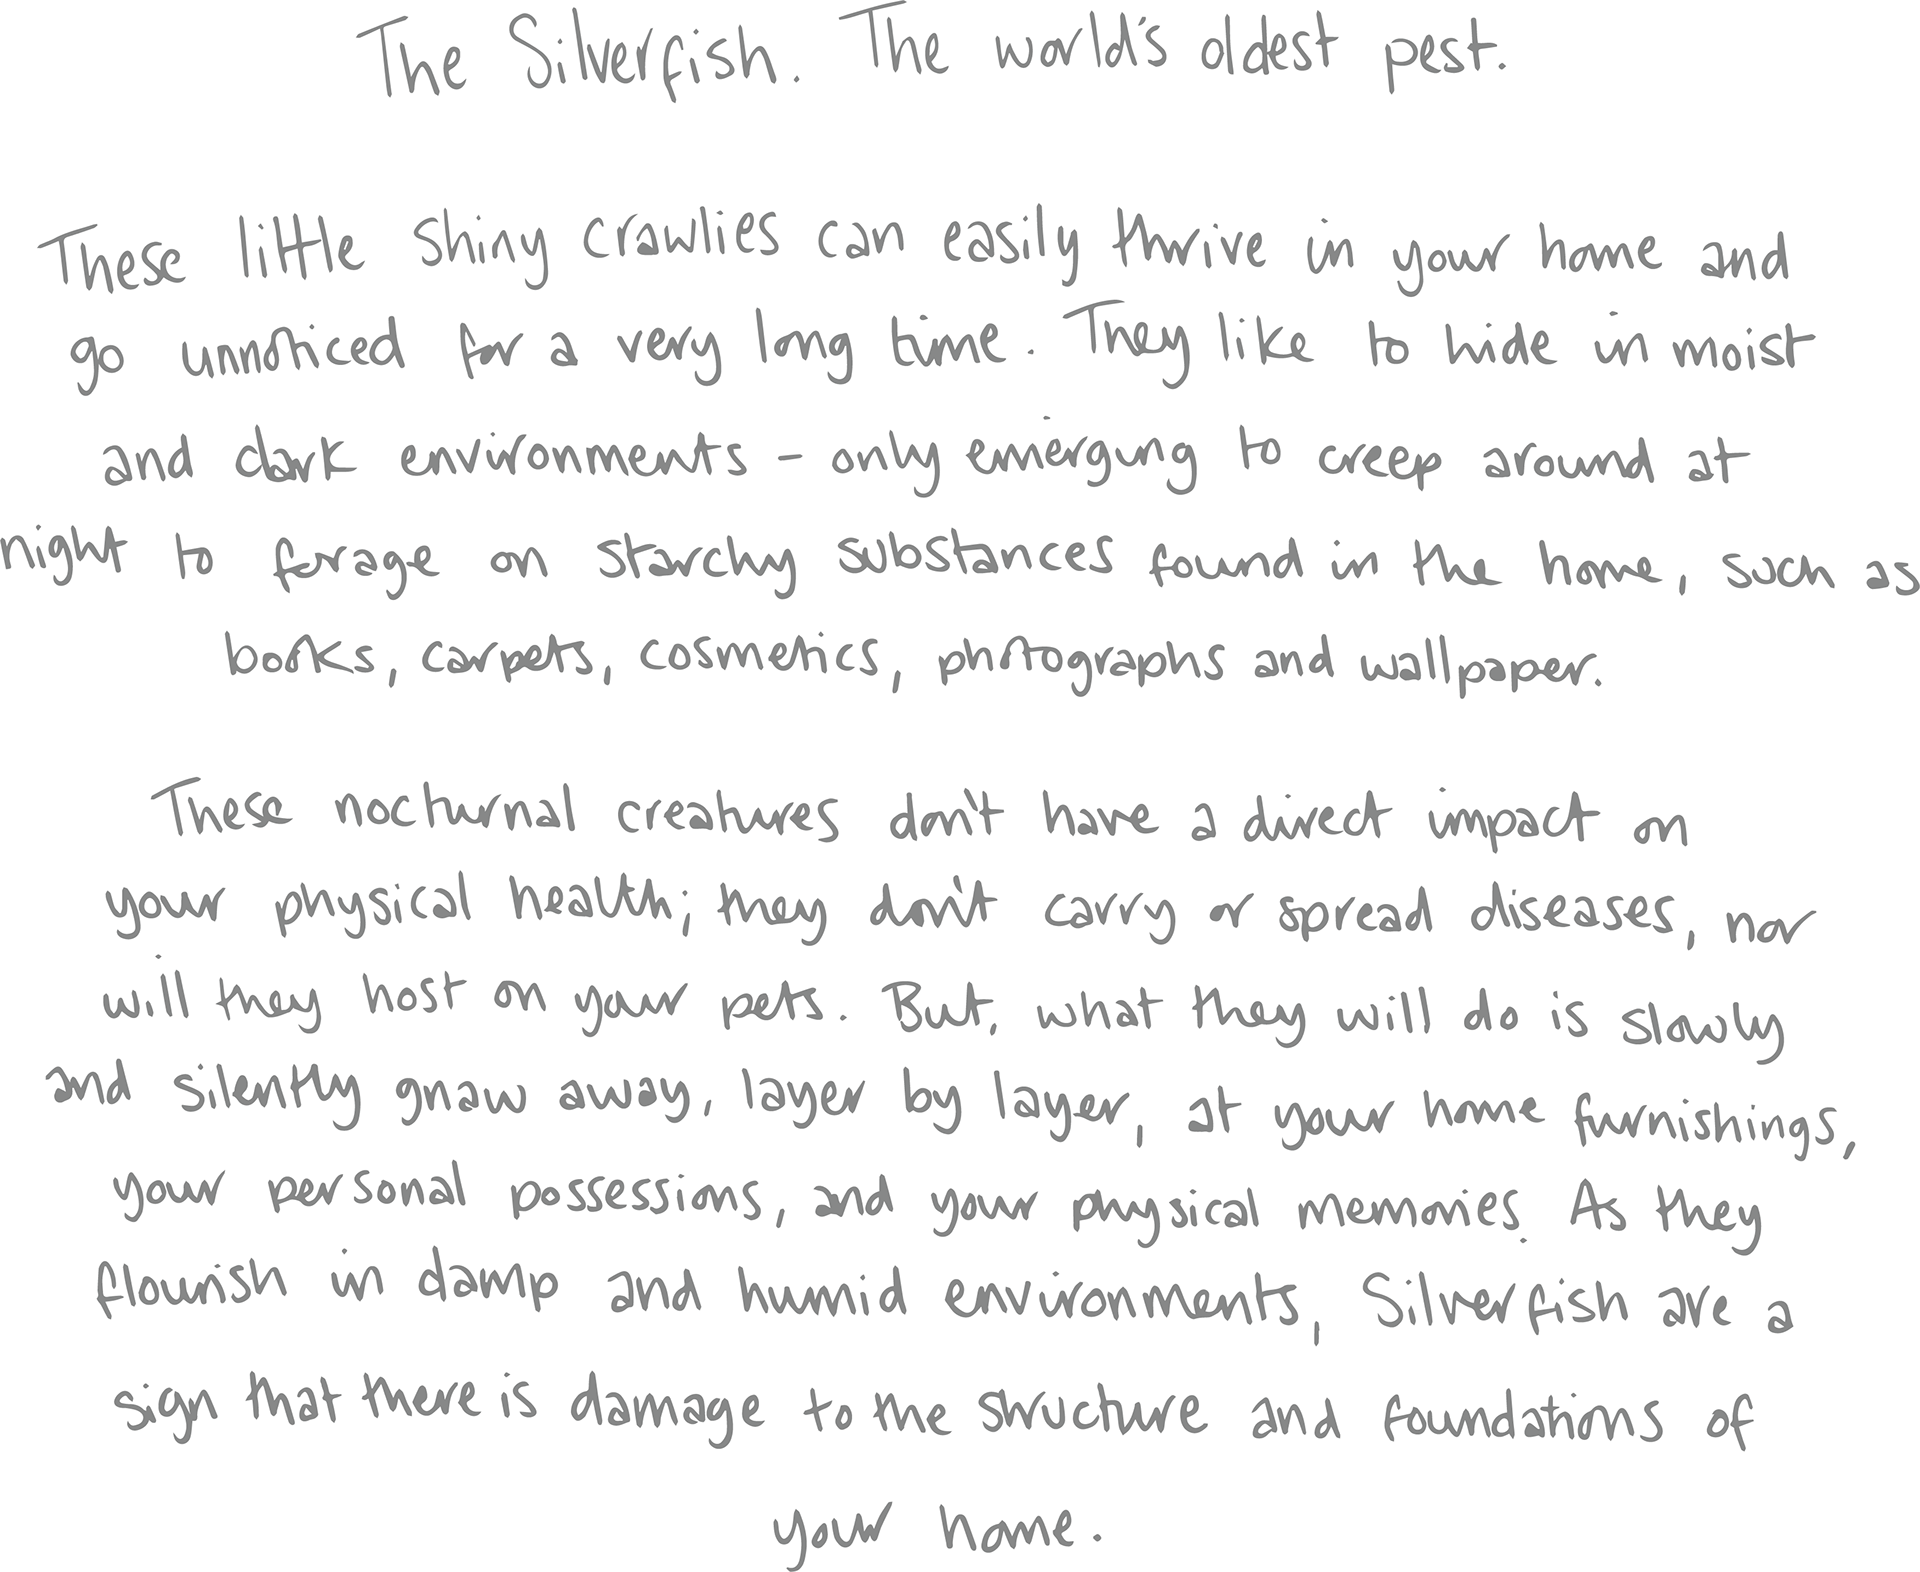 The Silverfish. The world's oldest pest.
These little shiny crawlies can easily thrive in your home and
go unnoticed for a very long time. They like to hide in moist
and dark environments - only emerging to creep around at
night to forage on starchy substances found in the home, such as
books, carpets, cosmetics, photographs and wallpaper.
These nocturnal creatures don't have a direct impact on
your physical health; they don't carry or spread diseases, nor
will they host on your pets. But, what they will do is slowly
and silently gnaw away, layer by layer, at your home furnishings,
your personal possessions, and your physical memories. As they
flourish in damp and humid environments, Silverfish are a
sign that there is damage to the structure and foundations of
your home.